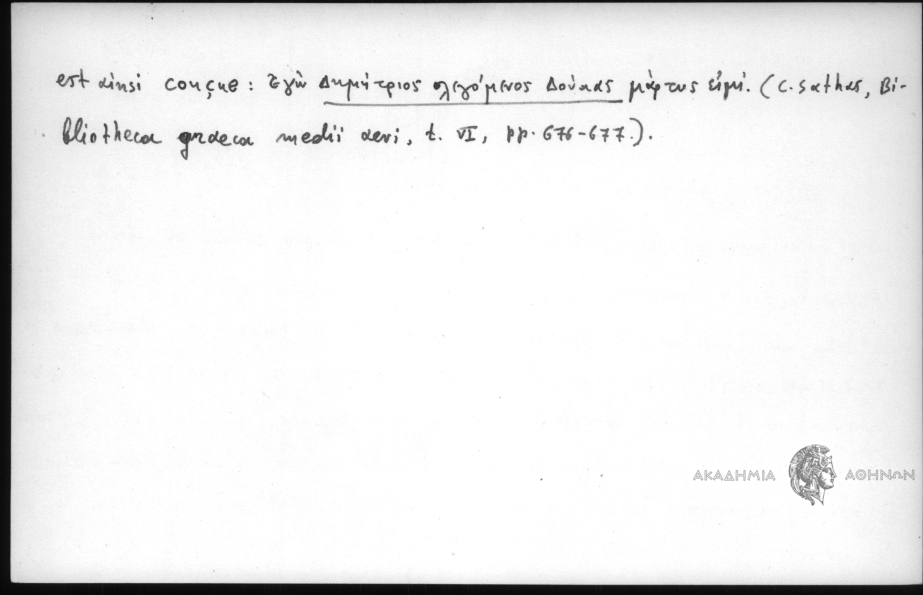 est ainsi conçue : Ἐγὼ Δημήτριος λεγόμενος Δούκας μάρτυς εἰμί. (C. Sathas, Bi-
bliotheca graeca medii aevi, t. VI, pp. 676-677.).
ΑΚΑΔΗΜΙΑ ΑΘΗΝΩΝ